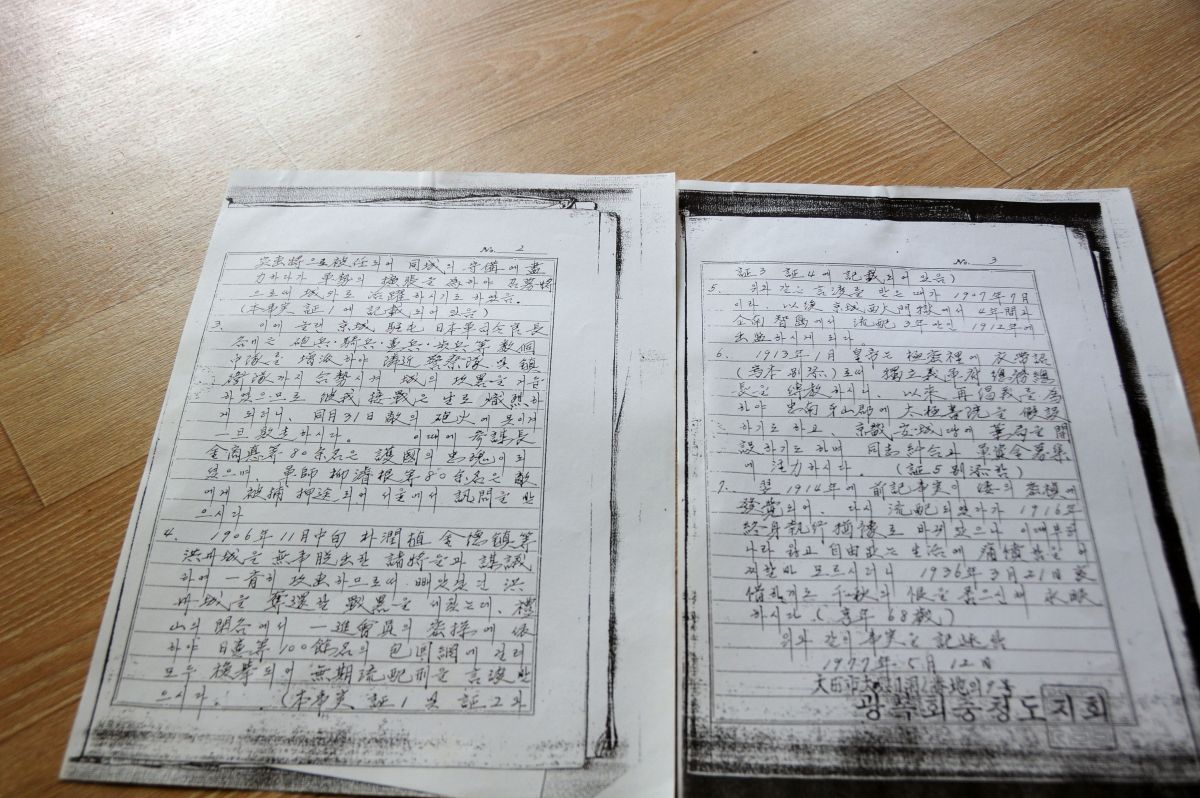 No. 2
突虫将으로 被任되어 同城의 守備에 盡
力하다가 軍勢의 擴張을 爲하야
으로때 城外로 活躍하시기도 하였음.
(本事実 証1에 記載되어 있음)
3. 이에 놀랜 京城 駐屯 日本軍司令官長
谷川은 砲兵·騎兵·憲兵·歩兵等 数個
中隊를 増派하야 隣近 警察隊 及 鎮
衛隊까지 合勢시켜 城의 攻畧을 거듭
하였으므로 彼我 接戰은 生로 熾烈하
게 되더니, 同月31日 敵의 砲火에 못이겨
一旦 敗走하시다. 이때에 参謀長
金商悳等 80余名은 護國의 忠魂이 되
셨으며, 軍師 柳濬根等 80余名은 敵
에게 被捕 押途되어 서울에서 訊問을 받
으시다
4. 1906年 11月中旬 朴潤植 金德鎮等
洪州城을 無事脱出한 諸將들과 謀議
하여 一斉히 攻畧하므로때 빼앗겼던 洪
州城을 奪還할 戰畧을 세웠는데, 禮
山의 閑谷에서 一進會員의 密探에 依
하야 日憲等 100餘名의 包圍網에 걸려
모두 被拏되어 無期流配刑을 言渡받
으시다. (本事実 証1 及 証2와
No. 3
証3 証4에 記載되어 있음)
5. 위와 같은 言渡를 받은 때가 1907年 7月
이라. 以後 京城西大門獄에서 4年間과
全南 智島에서 流配 3年만인 1912年에
出監하시게 되다.
6. 1913年 1月 皇帝는 極密裡에 衣帶詔
(寫本 別添)로때 獨立義軍府 總務總
長을 하시니, 以來 再倡義를 爲
하야 忠南 牙山郡에 太極書院을 假設
하기도 하고, 京畿 安城 等에 藥局을 開
設하기도 하며 同志糾合과 軍資金募集
에 注力하시다. (証5 別添함)
7. 翌 1914年에 前記事実이 倭의 密偵에
發覚되어, 다시 流配되었다가 1916年
終身執行猶豫로 바뀌었으나 이때부터
나라 잃고 自由없는 生活에 痛憤함을 어
찌할바 모르시더니 1936年 3月 21日 哀
惜하게도 千秋의 恨을 품으신 채 永眠
하시다. (享年 68歳)
위와 같이 事実을 記述함
1977年 5月 12日
광복회충청도지회